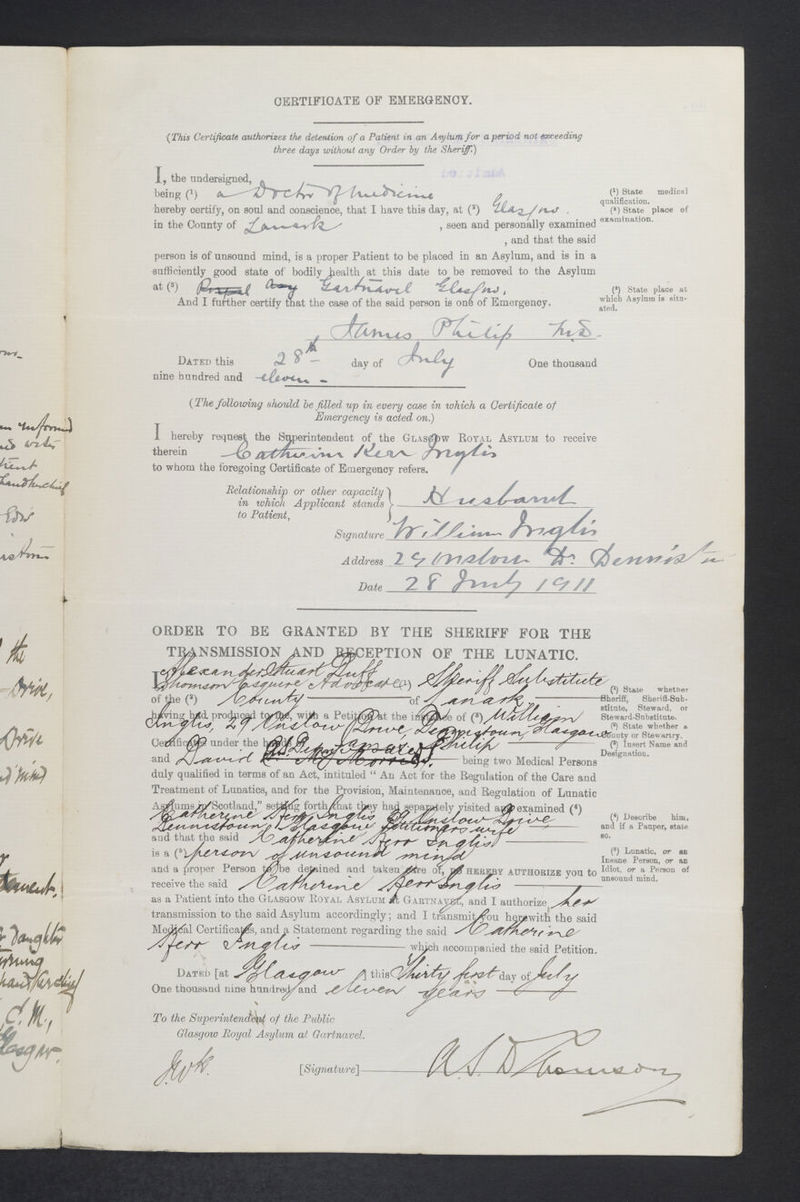 CERTIFICATE OF EMERGENCY.
(This Certificate authorizes the detention of a Patient in an Asylum for a period not exceeding
three days without any Order by the Sheriff.)
I, the undersigned,
being (¹) a Doctor of medicine
hereby certify, on soul and conscience, that I have this day, at (²) Glasgow.
in the County of Lanark , seen and personally examined
, and that the said
person is of unsound mind, is a proper Patient to be placed in an Asylum, and is in a
sufficiently good state of bodily health at this date to be removed to the Asylum
at (³) Royal Asy Gartnavel Glasgow.
And I further certify that the case of the said person is one of Emergency.
James Philip M.D.
DATED this 28th day of July One thousand
nine hundred and eleven -
(¹) State medical
qualification.
(²) State place of
examination.
(³) State place at
which Asylum is situ-
ated.
(The following should be filled up in every case in which a Certificate of
Emergency is acted on.)
I hereby request the Superintendent of the GLASGOW ROYAL ASYLUM to receive
therein Catherine Kerr Inglis
to whom the foregoing Certificate of Emergency refers.
Relationship or other capacity
in which Applicant stands
to Patient,
Husband
Signature William Inglis
Address 29 Onslow Dr. Dennistn
Date 28 July 1911
ORDER TO BE GRANTED BY THE SHERIFF FOR THE
TRANSMISSION AND RECEPTION OF THE LUNATIC.
I, Alexander Stuart Duff
Thomson Esquire Advocate (¹) Sheriff Substitute
of the (²) County of Lanark,
having had produced to me, with a Petition at the instance of (³) William
Inglis, 29 Onslow Drive, Dennistoun, Glasgow
Certificates under the hands of James Philip
and David Mc being two Medical Persons
duly qualified in terms of an Act, intituled "An Act for the Regulation of the Care and
Treatment of Lunatics, and for the Provision, Maintenance, and Regulation of Lunatic
Asylums in Scotland," setting forth that they had separately visited and examined (⁴)
Catherine Kerr Inglis 29 Onslow Drive
Dennistoun, Glasgow petitioners wife
and that the said Catherine Kerr Inglis
is a (⁵) person of unsound mind
and a proper Person to be detained and taken care of, DO HEREBY AUTHORIZE you to
receive the said Catherine Kerr Inglis
as a Patient into the GLASGOW ROYAL ASYLUM at GARTNAVEL, and I authorize her
transmission to the said Asylum accordingly; and I transmit you herewith the said
Medical Certificates, and a Statement regarding the said Catherine
Kerr Inglis which accompanied the said Petition.
DATED [at Glasgow ] this Thirty first day of July
One thousand nine hundred and eleven years
(¹) State whether
Sheriff, Sheriff-Sub-
stitute, Steward, or
Steward-Substitute.
(²) State whether a
County or Stewartry.
(³) Insert Name and
Designation.
(⁴) Describe him,
and if a Pauper, state
so.
(⁵) Lunatic, or an
Insane Person, or an
Idiot, or a Person of
unsound mind.
To the Superintendent of the Public
Glasgow Royal Asylum at Gartnavel.
[Signature] A. S. D. Thomson